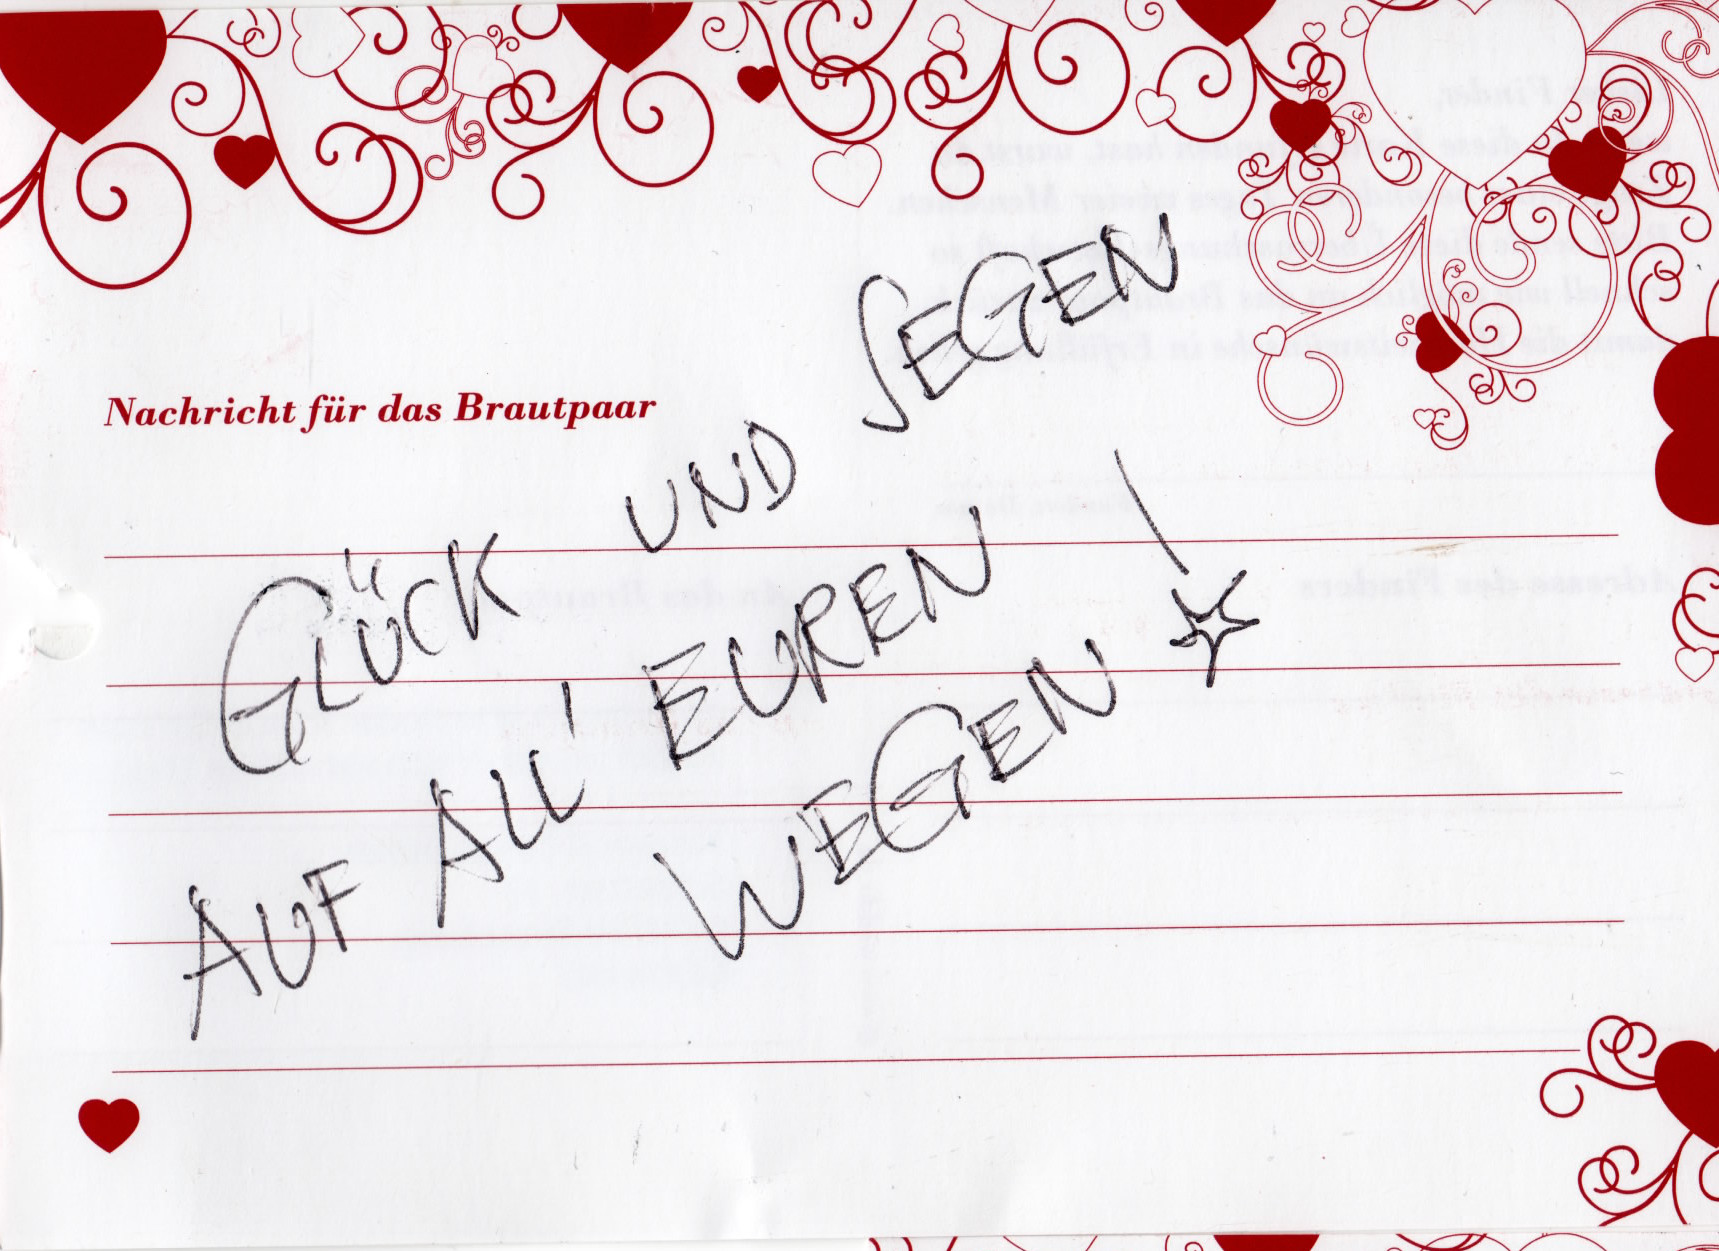 Nachricht für das Brautpaar
GLÜCK UND SEGEN
AUF ALL EUREN
WEGEN!